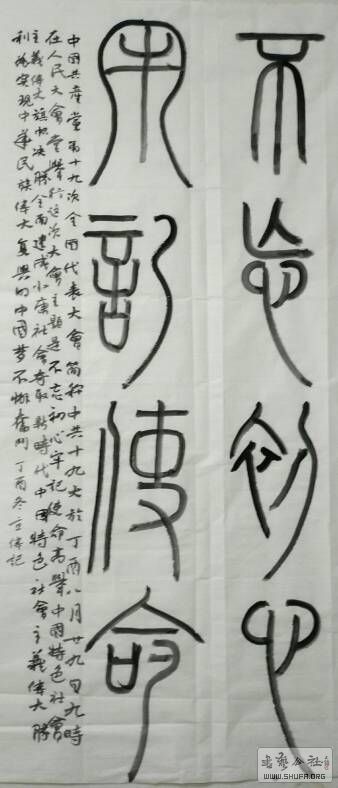 不忘初心
牢記使命
中國共產黨第十九次全國代表大會簡称中共十九大於丁酉八月廿九日九時
在人民大會堂舉行这次大會主题是不忘初心牢记使命高舉中國特色社會
主義偉大旗帜决勝全面建成小康社會夺取新時代中國特色社會主義偉大勝
利為实現中華民族偉大复興的中國梦不懈奮鬥丁酉冬立偉記
書藝公社
WWW.SHUFA.ORG